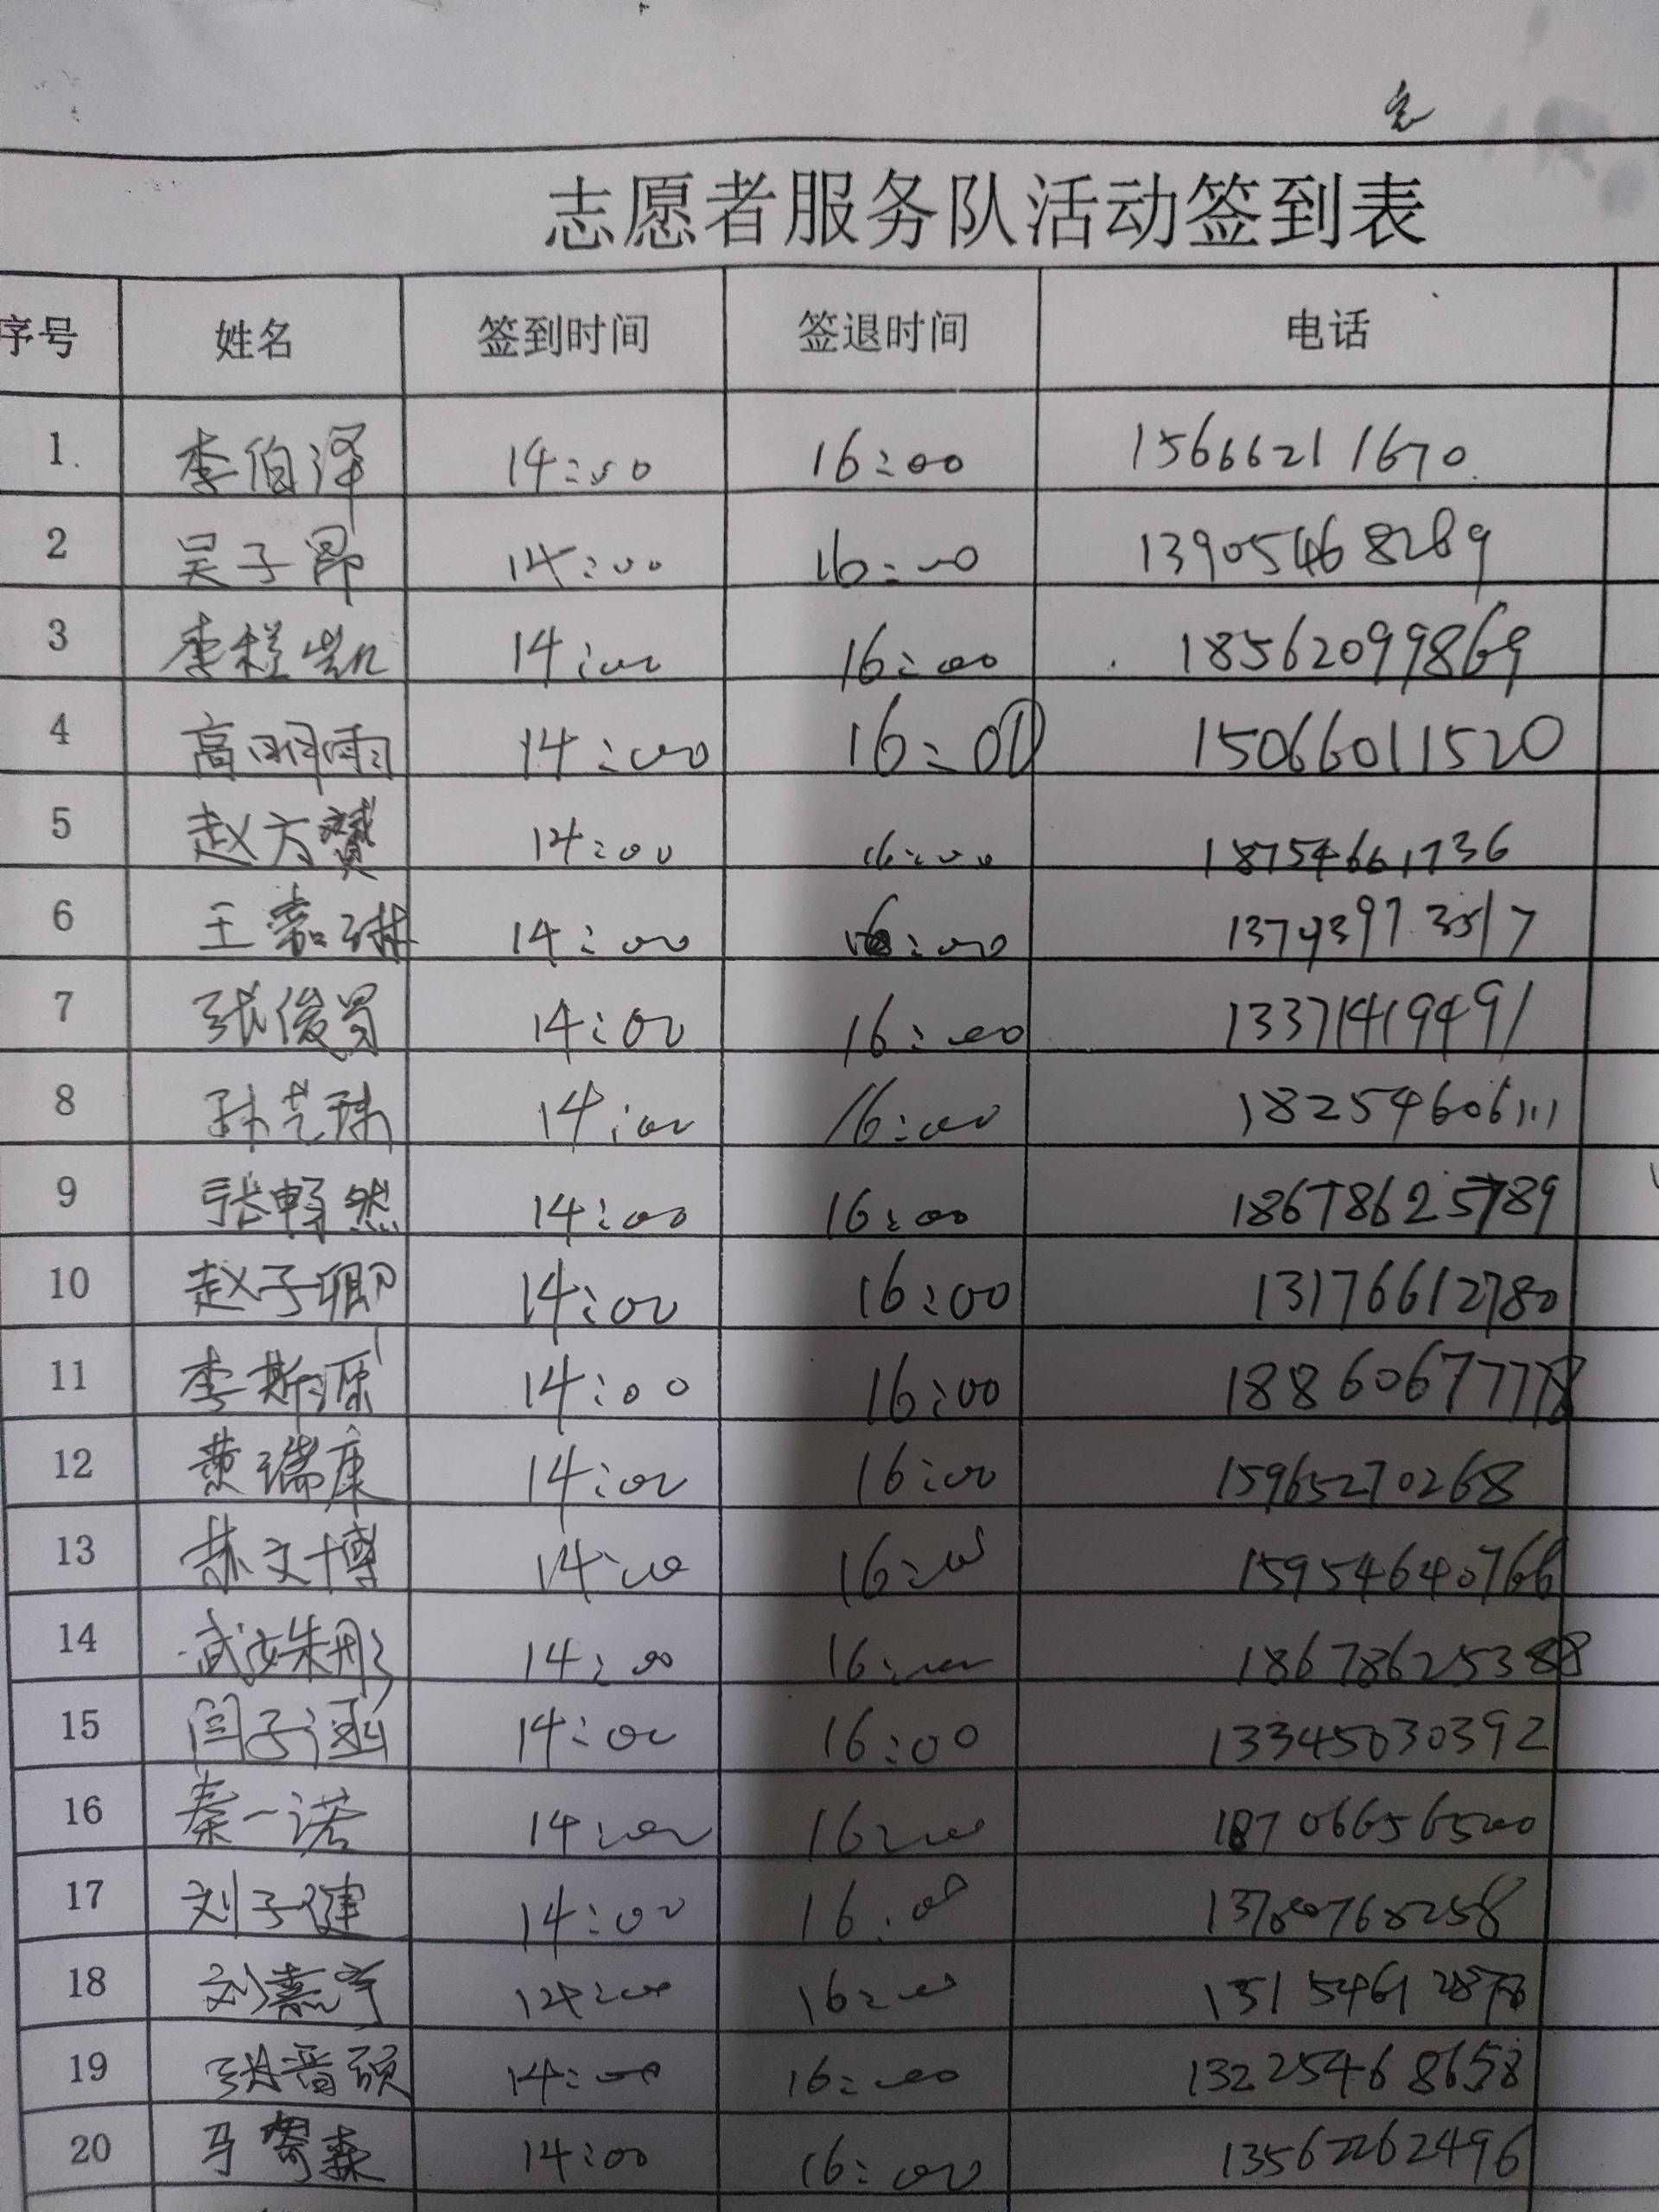 志愿者服务队活动签到表
序号 姓名 签到时间 签退时间 电话
1. 李伯泽 14:50 16:00 15666211670
2 吴子昂 14:00 16:00 13905468289
3 李程凯 14:00 16:00 18562099869
4 高明雨 14:00 16:00 15066011520
5 赵方赟 14:00 16:00 18754661736
6 王嘉琳 14:00 16:00
7 张俊 14:00 16:00 13371419491
8 孙艺珠 14:00 16:00 18254606111
9 张畅然 14:00 16:00 18678625789
10 赵子卿 14:00 16:00 13176612780
11 李斯源 14:00 16:00 18860677778
12 黄瑞康 14:00 16:00 15965270268
13 苏文博 14:00 16:00 15954640766
14 武姝彤 14:00 16:00 18678625388
15 闫子涵 14:00 16:00 13345030392
16 秦一诺 14:00 16:00 18706656500
17 刘子健 14:00 16:00
18 刘嘉宇 14:00 16:00
19 张晋硕 14:00 16:00 13225468658
20 马 森 14:00 16:00 13562262496